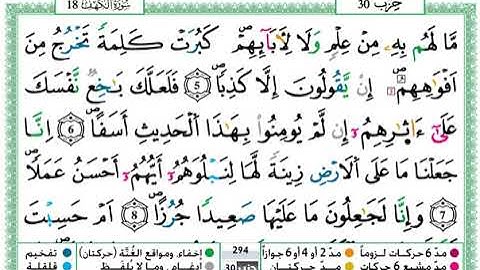 حِزْب 30
سُورَةُ الكَهْفِ 18
مَّا لَهُم بِهِۦ مِنْ عِلْمٍ وَلَا لِأَبَآئِهِمْ كَبُرَتْ كَلِمَةً تَخْرُجُ مِنَ
اَفْوَٰهِهِمُۥٓ إِنْ يَّقُولُونَ إِلَّا كَذِباً 5 فَلَعَلَّكَ بَٰخِعٌ نَّفْسَكَ
عَلَىٰٓ ءَاثَٰرِهِمُۥٓ إِن لَّمْ يُومِنُوا۟ بِهَٰذَا اَ۬لْحَدِيثِ أَسَفاً 6 اِنَّا
جَعَلْنَا مَا عَلَى اَ۬لَارْضِ زِينَةً لَّهَا لِنَبْلُوَهُمُۥٓ أَيُّهُمُۥٓ أَحْسَنُ عَمَلاً
7 وَإِنَّا لَجَٰعِلُونَ مَا عَلَيْهَا صَعِيداً جُرُزاً 8 اَمْ حَسِبْتَ
مدّ 6 حركات لزوماً
مدّ 2 أو 4 أو 6 جوازاً
294
إخفاء، ومواقع الغُنَّة (حركتان)
تفخيم
مدّ مشبع 6 حركات
مدّ حركتان
30
إدغام، وما لا يُلفَظ
قلقلة